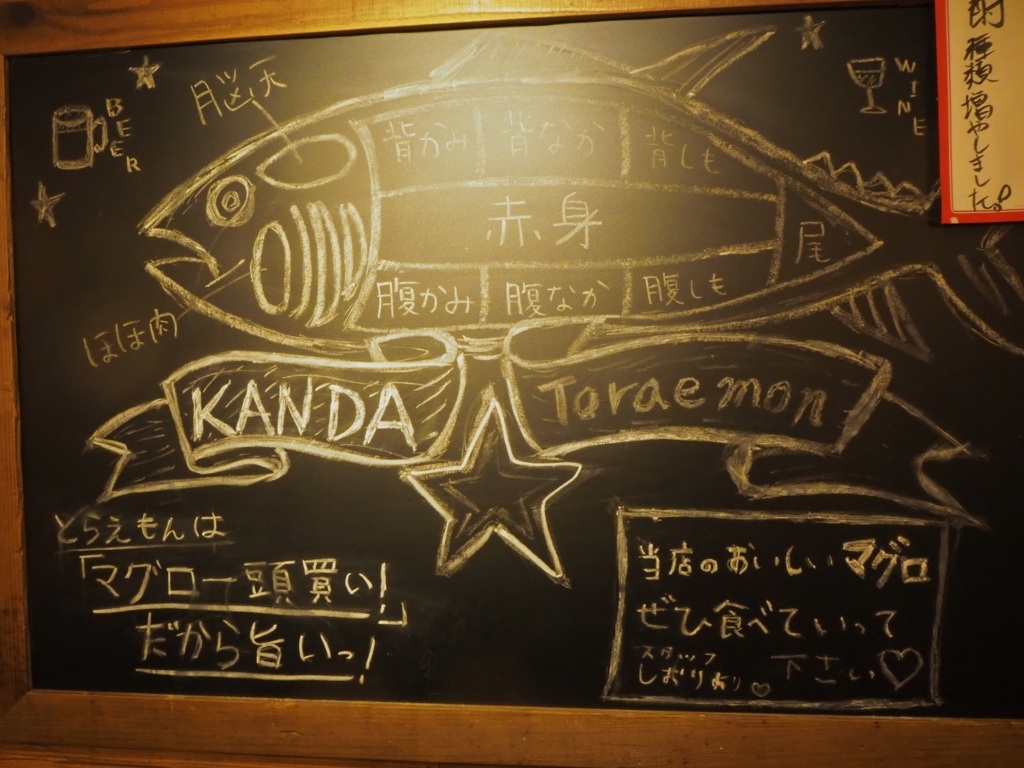 BEER
脳天
WINE
酎
種類増やしました。
背かみ 背なか 背しも
赤身
尾
腹かみ 腹なか 腹しも
ほほ肉
KANDA Toraemon
とらえもんは
「マグロ一頭買い!」
だから旨いっ!
当店のおいしいマグロ
ぜひ食べていって
下さい♡
スタッフ
しおりより♡